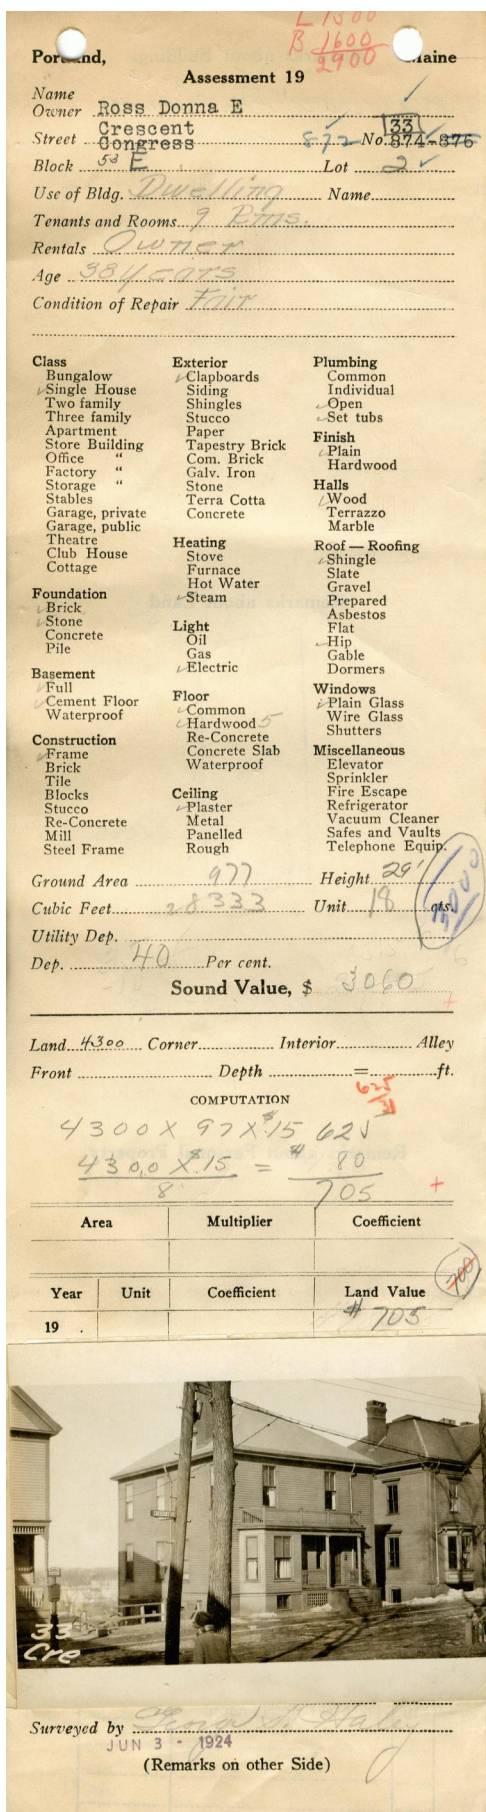 L 1300
B 1600
2900
Portland, Maine
Assessment 19
Name
Owner Ross Donna E
Crescent 33
Street Congress 872 No. 874-876
Block 53 E Lot 2
Use of Bldg. Dwelling Name
Tenants and Rooms 9 Rms.
Rentals Owner
Age 38 years
Condition of Repair Fair
Class
Bungalow
Single House
Two family
Three family
Apartment
Store Building
Office "
Factory "
Storage "
Stables
Garage, private
Garage, public
Theatre
Club House
Cottage
Foundation
Brick
Stone
Concrete
Pile
Basement
Full
Cement Floor
Waterproof
Construction
Frame
Brick
Tile
Blocks
Stucco
Re-Concrete
Mill
Steel Frame
Exterior
Clapboards
Siding
Shingles
Stucco
Paper
Tapestry Brick
Com. Brick
Galv. Iron
Stone
Terra Cotta
Concrete
Heating
Stove
Furnace
Hot Water
Steam
Light
Oil
Gas
Electric
Floor
Common
Hardwood 5
Re-Concrete
Concrete Slab
Waterproof
Ceiling
Plaster
Metal
Panelled
Rough
Plumbing
Common
Individual
Open
Set tubs
Finish
Plain
Hardwood
Halls
Wood
Terrazzo
Marble
Roof — Roofing
Shingle
Slate
Gravel
Prepared
Asbestos
Flat
Hip
Gable
Dormers
Windows
Plain Glass
Wire Glass
Shutters
Miscellaneous
Elevator
Sprinkler
Fire Escape
Refrigerator
Vacuum Cleaner
Safes and Vaults
Telephone Equip.
Ground Area 977 Height 29'
Cubic Feet 28333 Unit 18 cts.
Utility Dep.
Dep. 40 Per cent.
Sound Value, $ 3060
Land 4300 Corner Interior Alley
Front Depth = ft.
625
COMPUTATION
4300 X 97 X $.15 625
4300 X $.15 = $ 80
8 705
Area Multiplier Coefficient
700
Year Unit Coefficient Land Value
19 . $ 705
33
Cre
Surveyed by
JUN 3 - 1924
(Remarks on other Side)